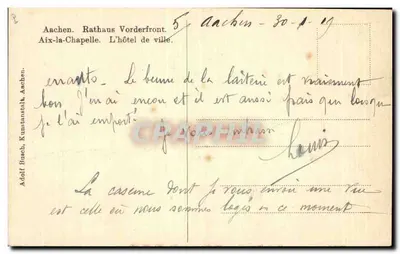 5 Aachen 30-1-19
Aachen. Rathaus Vorderfront.
Aix-la-Chapelle. L'hôtel de ville.
errants. Le beurre de la laiterie est vraiment
bon J'en ai encore et il est aussi frais que lorsque
je l'ai emporté.
Louis
La caserne dont je vous envoie une vue
est celle où nous sommes logés en ce moment
Adolf Busch, Kunstanstalt, Aachen.
CPARAMA